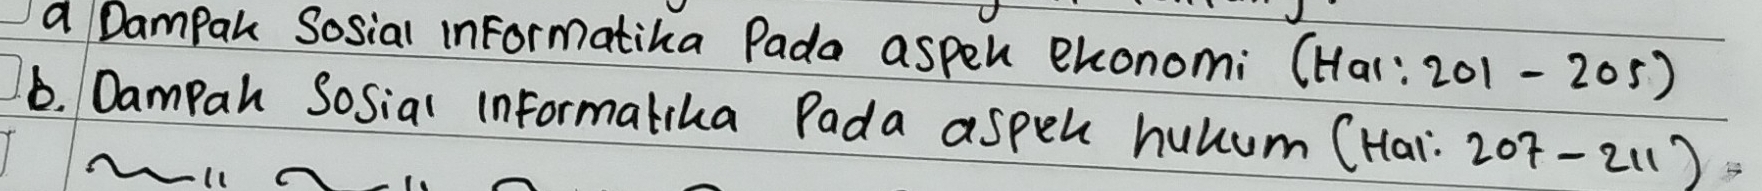 a Dampak Sosial informatika Pada aspek ekonomi (Hal: 201 - 205)
b. Dampak Sosial informatika Pada aspek hukum (Hal: 207 - 211)